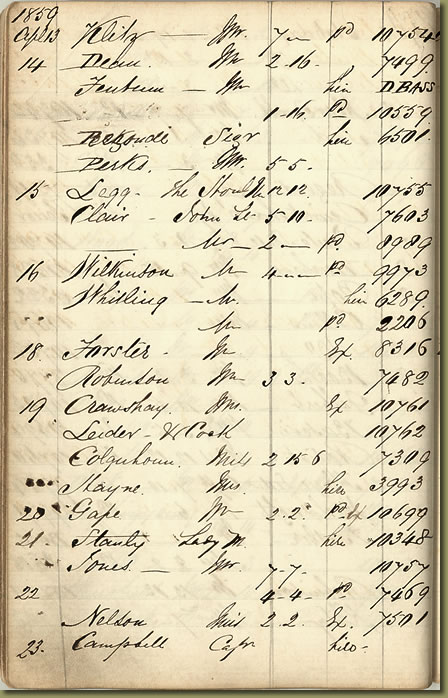 1859
Apl 13 Klitz — Mr 7 — pd 10754
14 Dean. Mr 2-16. 7499.
Fentum — Mr hire D BASS
1-16. Pd 10559.
Regondi Sigr hire 6501.
Perks. — Mr. 5 5.
15 Legg. The 12 12. 10755
Clair - John St 5-10. 7603
— Mr — 2 — pd 8989
16 Wilkinson Mr 4 — pd 9973
Whitling — Mr. hire 6289.
Mr pd 2206
18. Forster. Mr Ex. 8316
Robinson Mr 3 3. 7482
19 Crawshay. Mrs. Ex 10761
Leider - & Cook 10762
Colquhoun. Miss 2 15 6 7309
Mayne. Mrs. hire 3993
20 Gape Mr 2.2. Pd 10692
21. Stanly Lady M. hire 10348
Jones. — Mr 7-7. 10757
22 4-4- Pd 7469
Nelson Miss 2.2. Ex. 7501
23. Campbell Capt hire-